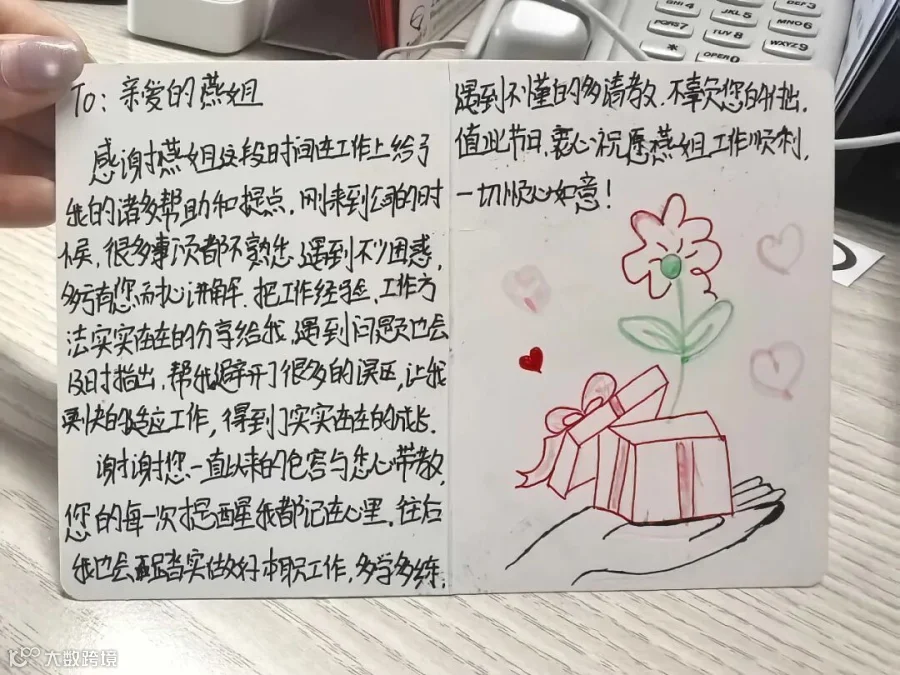 To: 亲爱的燕姐
感谢燕姐这段时间在工作上给了
我的诸多帮助和提点，刚来到公司的时
候，很多事项都不熟悉，遇到不少困惑，
多亏有您耐心讲解，把工作经验、工作方
法实实在在的分享给我，遇到问题也会
及时指出，帮我避开了很多的误区，让我
更快的适应工作，得到了实实在在的成长。
谢谢您一直以来的包容与悉心带教，
您的每一次提醒我都记在心里，往后
我也会踏实做好本职工作，多学多练，
遇到不懂的多请教，不辜负您的付出。
值此节日，衷心祝愿燕姐工作顺利，
一切顺心如意！
PQRS7
JKL5
TUV8
OPER0
MNO6
WXYZ9
DEF3
*
大数跨境